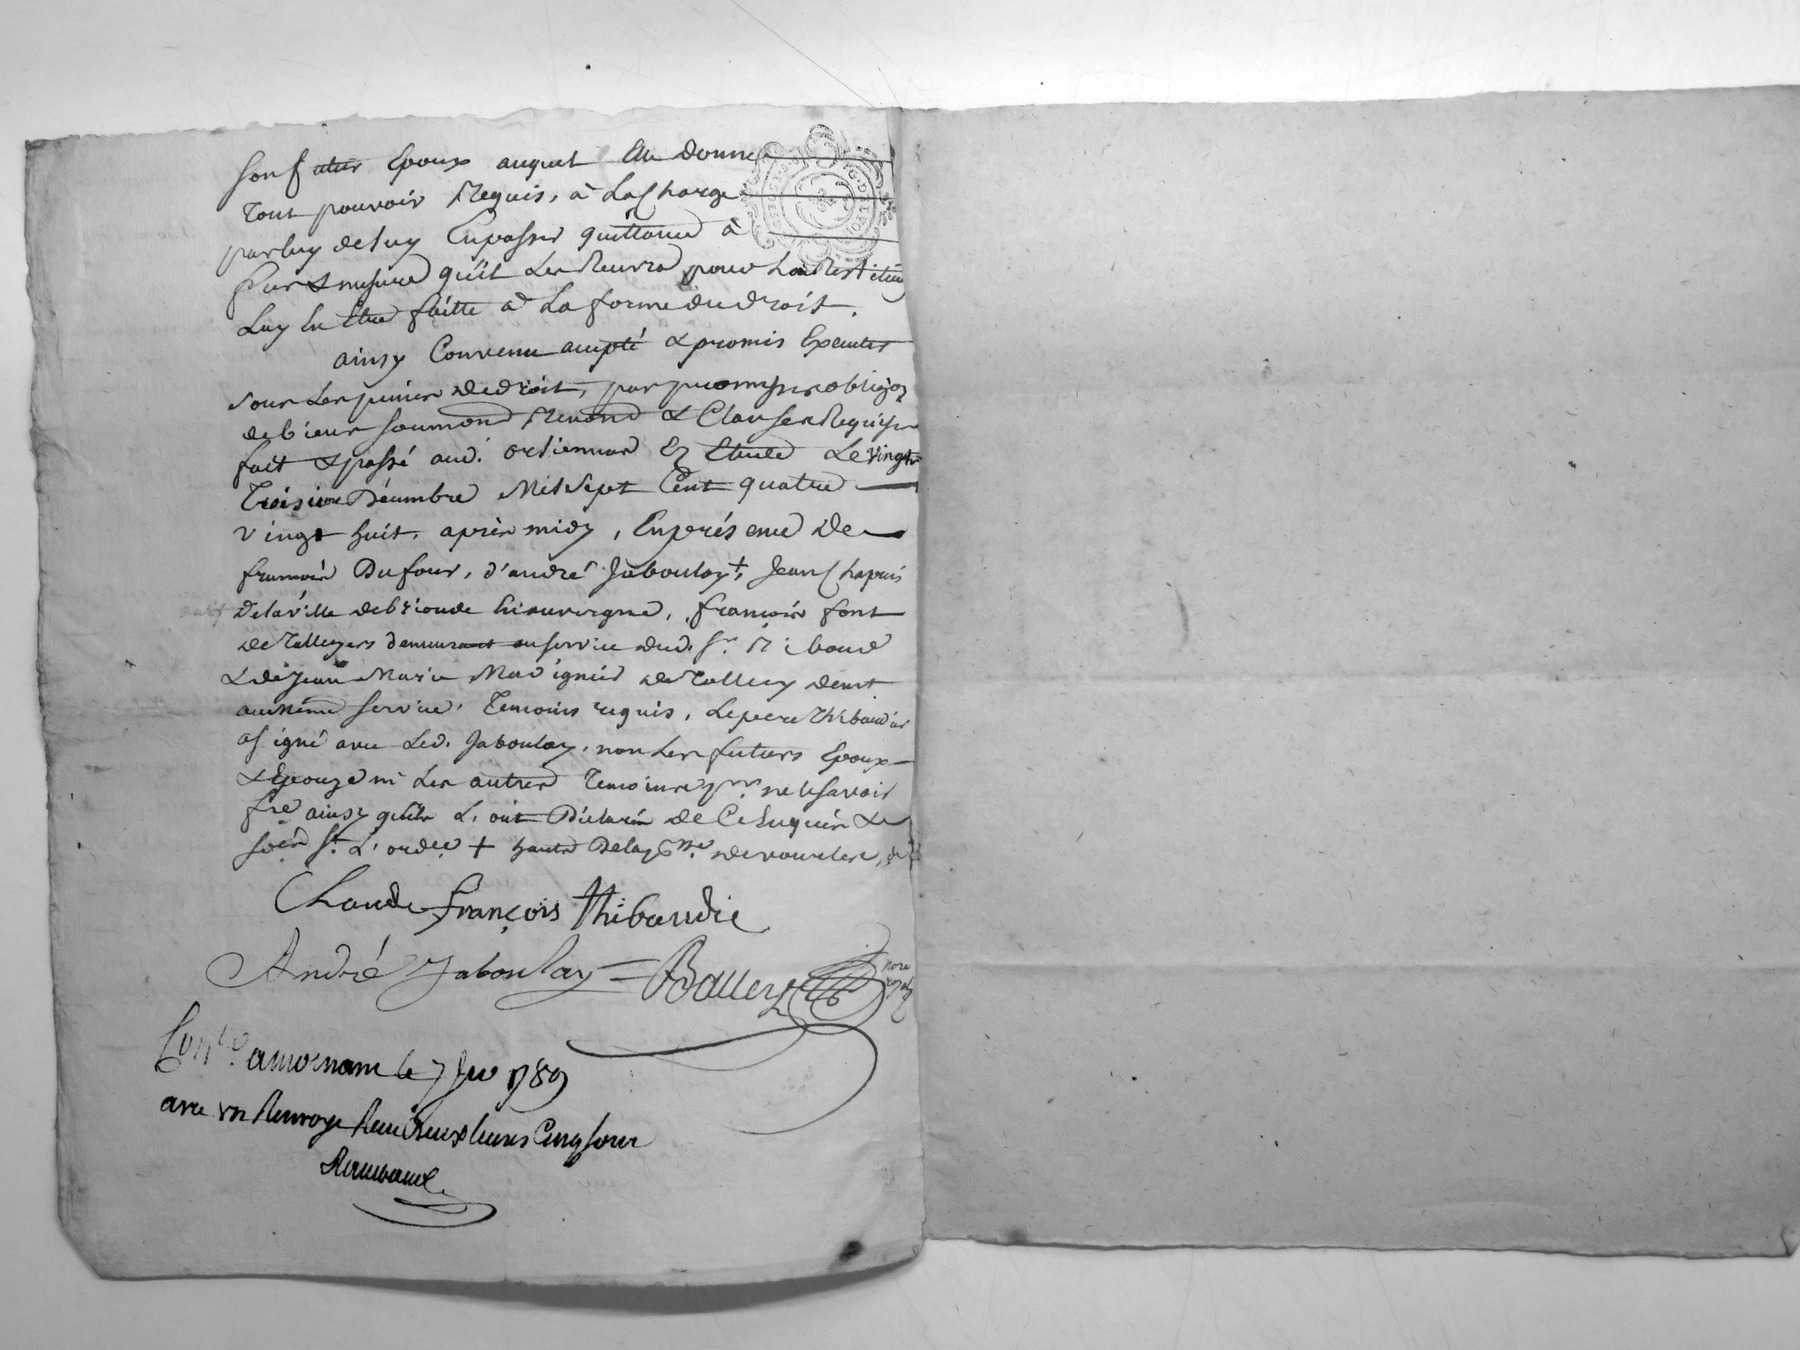 son futur Epoux auquel Elle donne
tout pouvoir Requis, à La Charge
par luy de luy En passer quittance à
fur & mesure qu'il Les Recevra pour La Restitution
Luy En Etre faitte à La forme du droit.
ainsy Convenu accepté & promis Executer
sous Les peines de droit, par promesses obligon
de biens soumons Renons & Clauses Requises
fait & passé aud. orliennas En Etude Le vingt
Troisieme Décembre Mil Sept Cent quatre
vingt huit, après midy, En présence de
françois Dufour, d'andré Jaboulay +, Jean Chapuis
natif de la ville de brioude En auvergne, françois font
de Talluyers demeurant au service dud. Sr.
& de Jean Marie Marignier de Talluy demt
au même service, Temoins requis, Le pere Thibaudier
a signé avec Led. Jaboulay, non Les futurs Epoux
& Epouze ni Les autres Temoins pour ne le savoir
fre ainsy qu'ils L'ont Déclaré de Ce Enquis &
St L'ordce +
Claude François thibaudie
André Jaboulay Ballery
nore royal
Conlé a mornant le 7 Jer 1789
avec un Renvoye Reçu deux livres Cinq sous